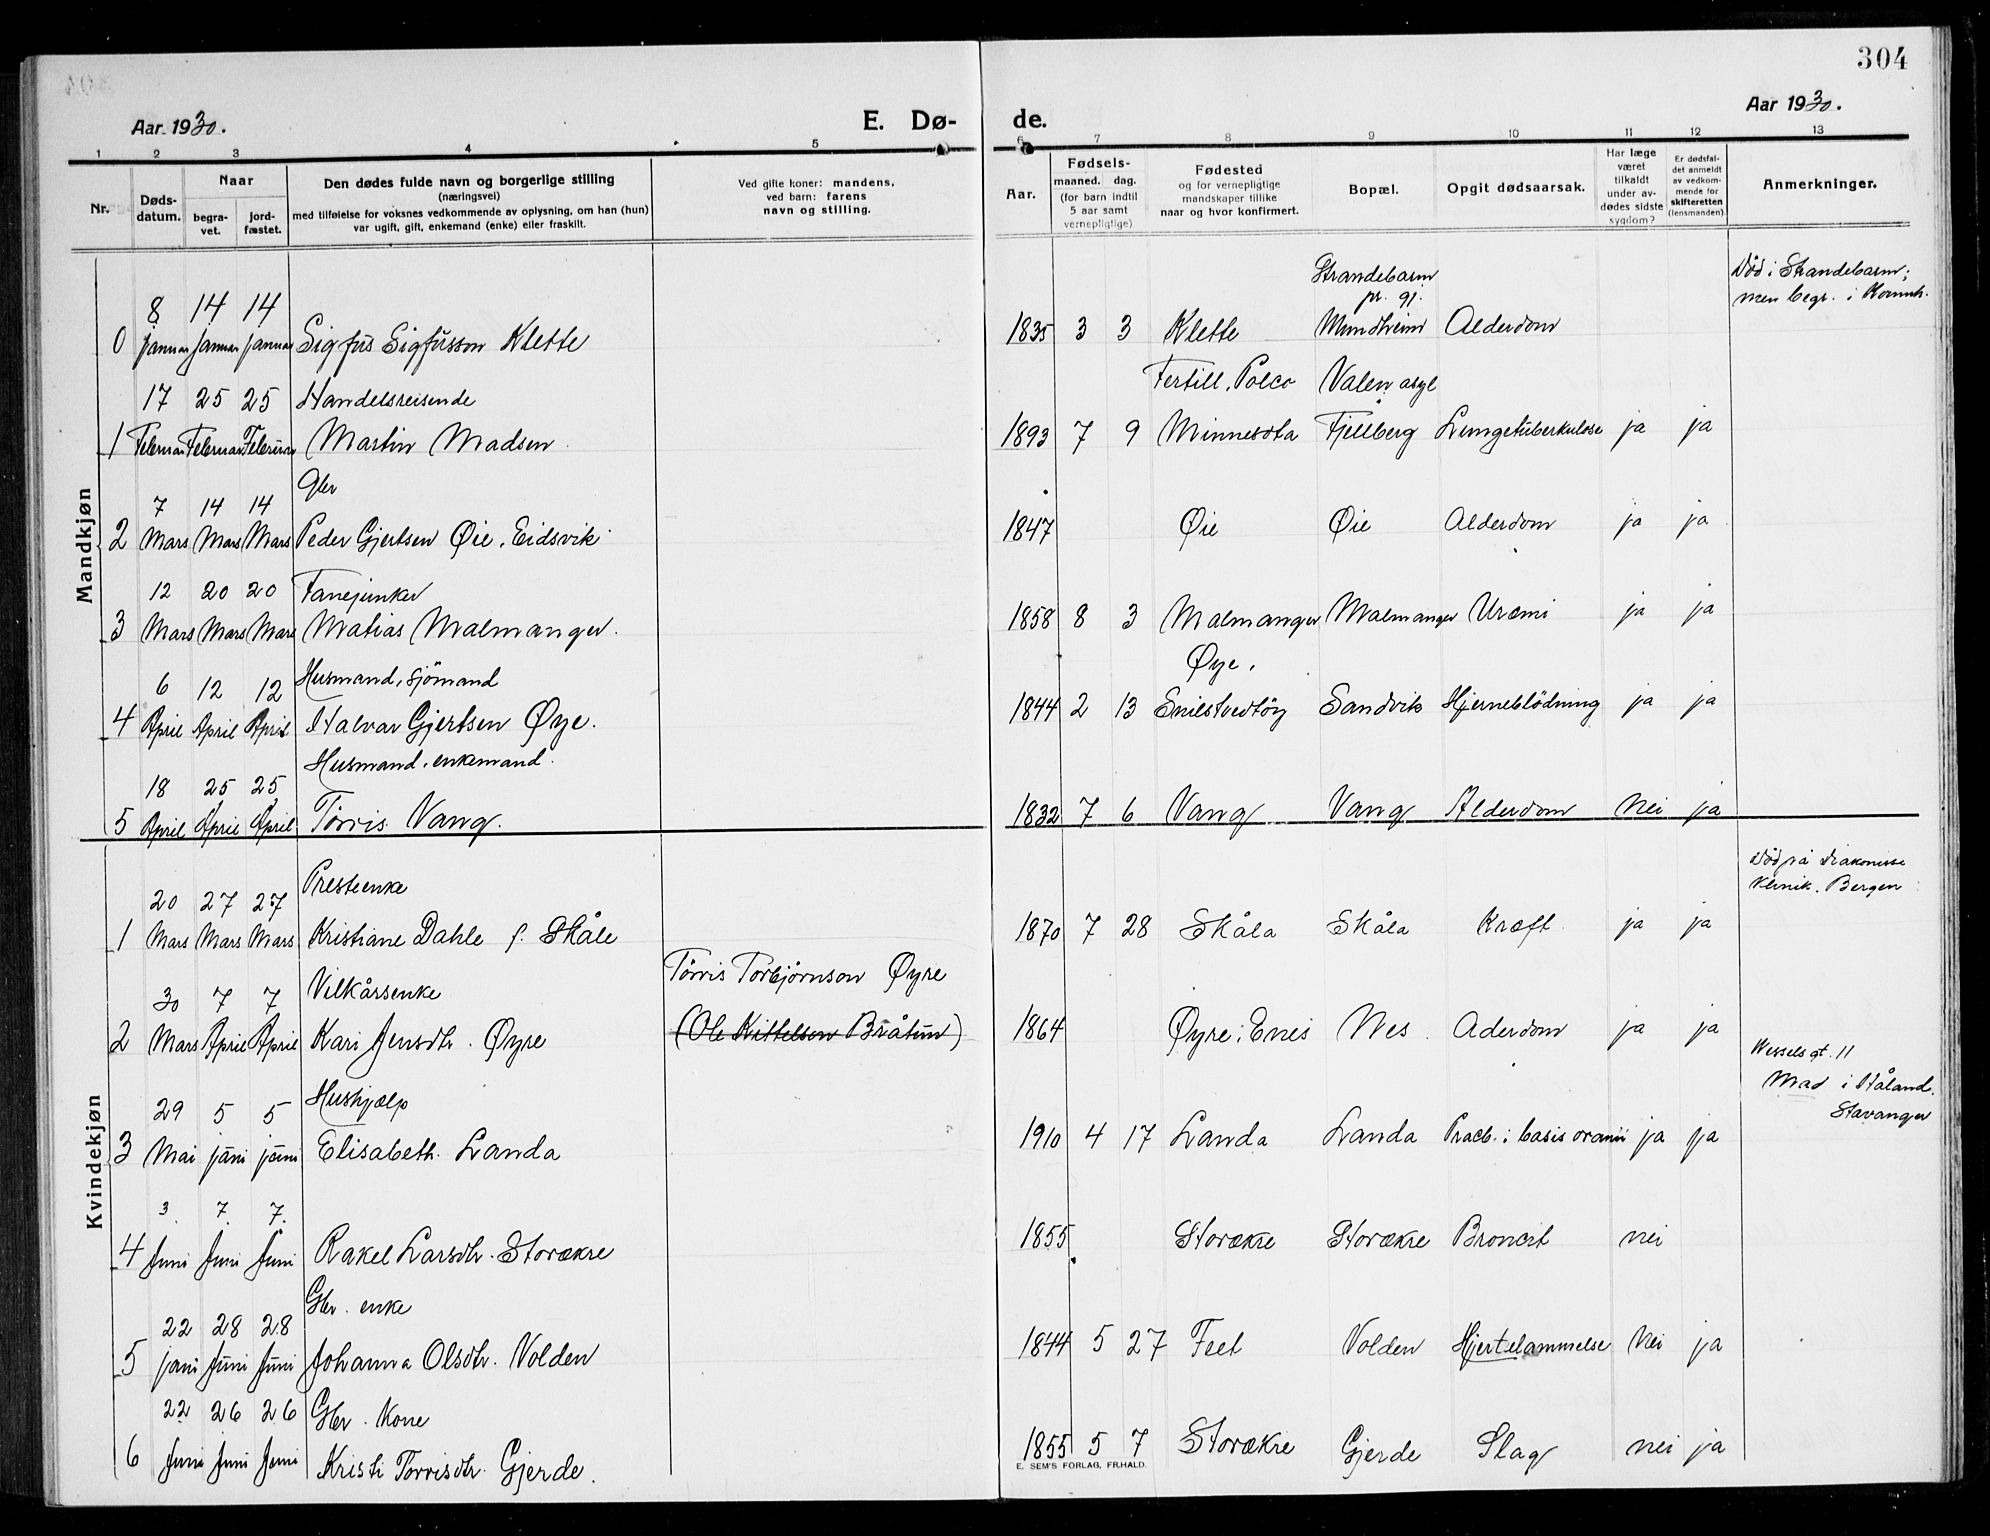 304
Aar 1930.
E. Dø-
de.
Aar 1930.
1 2 3 4 5 6 7 8 9 10 11 12 13
Nr.
Døds-
datum.
Naar
begra-
vet.
jord-
fæstet.
Den dødes fulde navn og borgerlige stilling
(næringsvei)
med tilføielse for voksnes vedkommende av oplysning, om han (hun)
var ugift, gift, enkemand (enke) eller fraskilt.
Ved gifte koner: mandens,
ved barn: farens
navn og stilling.
Aar.
Fødsels-
maaned. dag.
(for barn indtil
5 aar samt
vernepligtige)
Fødested
og for vernepligtige
mandskaper tillike
naar og hvor konfirmert.
Bopæl.
Opgit dødsaarsak.
Har læge
været
tilkaldt
under av-
dødes sidste
sygdom?
Er dødsfal-
det anmeldt
av vedkom-
mende for
skifteretten
(lensmanden).
Anmerkninger.
Mandkjøn
Strandebarm
pr. 91.
Død i Strandebarm;
men begr. i Kvinnh.
8 14 14
0 januar januar januar Sigfús Sigfússon Klette 1835 3 3 Klette Mundheim Alderdom
17 25 25 Handelsreisende Fertill, Polco Valen asyl
1 Februar Februar Februar Martin Madsen 1893 7 9 Minnesota Fjellberg Lungetuberkulose ja ja
Gbr
7 14 14
2 Mars Mars Mars Peder Gjertsen Øie, Eidsvik 1847 Øie Øie Alderdom ja ja
12 20 20 Fanejunker
3 Mars Mars Mars Matias Malmanger. 1858 8 3 Malmanger Malmanger Uræmi ja ja
6 12 12 Husmand, sjömand Øye.
4 April April April Halvar Gjertsen Øye. 1844 2 13 Sandvik Hjerneblödning ja ja
18 25 25 Husmand, enkemand.
5 April April April Tørris Vang. 1832 7 6 Vang Vang Alderdom Nei ja
Kvindekjøn
Død på Diakonisse
klinik. Bergen
20 27 27 Presteenke
1 Mars Mars Mars Kristiane Dahle f. Skåle 1870 7 28 Skåla Skåla Kræft. ja ja
30 7 7 Vilkårsenke Tørris Torbjørnson Øyre
2 Mars April April Kari Jensdtr. Øyre (Ole Kittelson Bråtun) 1864 Øyre i Enes Nes. Aderdom ja ja
Wesselsgt. 11
Mad i Håland.
Stavanger
29 5 5 Hushjælp
3 Mai júni júni Elisabeth Landa 1910 4 17 Landa Landa i basis cranii ja ja
3. 7. 7.
4 Juni Juni Juni Rakel Larsdtr. Storækre 1855 Storækre Storækre nei
22 28 28 Gbr. enke
5 juni Júni Júni Johanna Olsdtr. Volden 1844 5 27 Feet Volden Hjertelammelse Nei ja
22 26 26 Gbr. Kone
6 Juni Juni Juni Kristi Torrisdtr. Gjerde. 1855 5 7 Storækre Gjerde Slag nei ja
E. SEM'S FORLAG, FR.HALD.